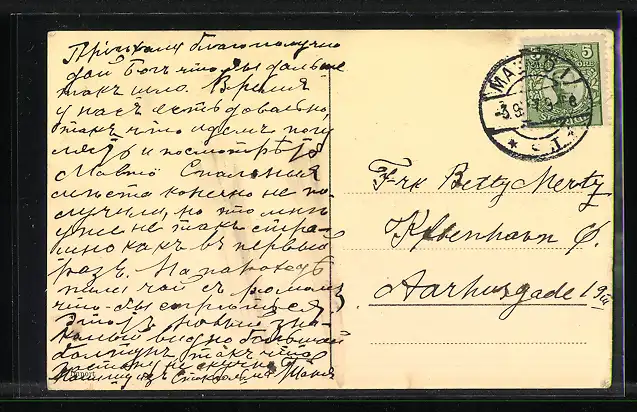 Пріѣхали благополучно
дай Богъ что бы дальше
такъ шло. Время
у насъ есть довольно,
такъ что идемъ погу
лять и посмотрѣть
Мальмö Спальныя
мѣста конечно не по-
лучили, но это мнѣ
уже не такъ стра-
шно какъ въ первый
разъ. На пароходѣ
пили чай съ ромомъ
что-бы согрѣться.
Этотъ новый зна-
комый видно большой
болтунъ такъ что
не скучно.
Напишу изъ Стокгольма Маня
MALMÖ 1
3.9
5
ÖRE
Frk Betty Mertz
Kjøbenhavn Ø.
Aarhusgade 19 III